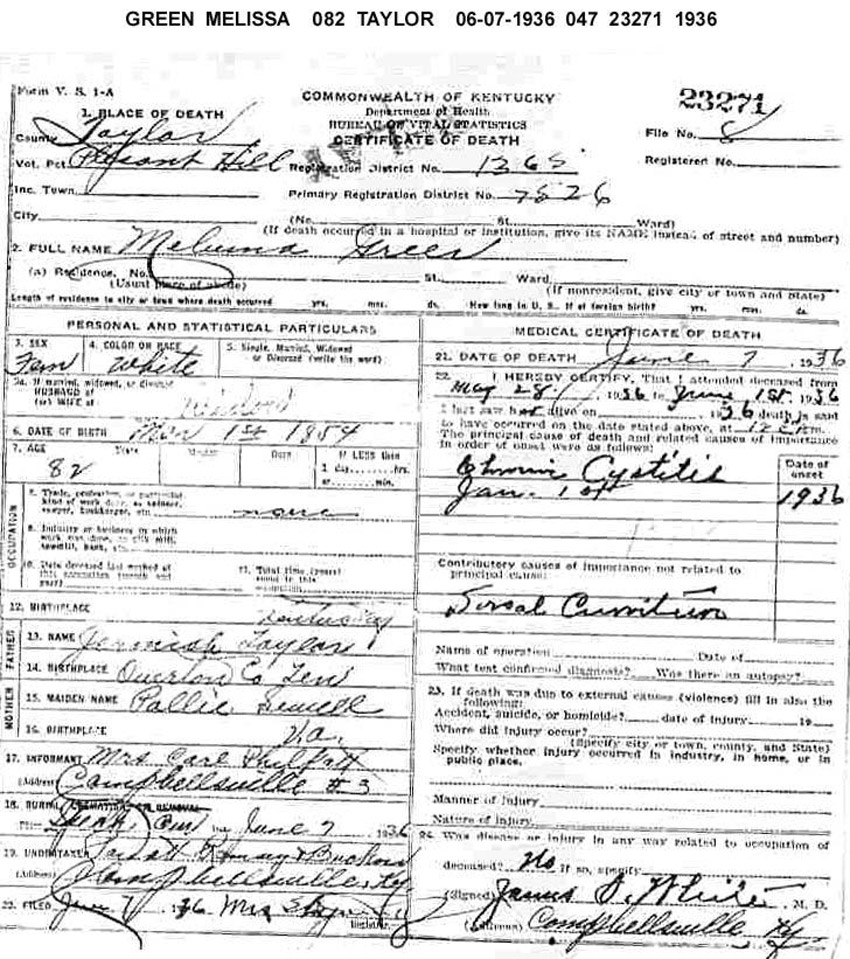 GREEN MELISSA 082 TAYLOR 06-07-1936 047 23271 1936
Form V. S. 1-A
COMMONWEALTH OF KENTUCKY
Department of Health
BUREAU OF VITAL STATISTICS
CERTIFICATE OF DEATH
23271
File No. 8
Registered No.
1. PLACE OF DEATH
County Taylor
Vot. Pct. Pleasant Hill
Registration District No. 1265
Inc. Town
Primary Registration District No. 7526
City (No. St. Ward)
(If death occurred in a hospital or institution, give its NAME instead of street and number)
2. FULL NAME Green
(a) Residence, No. St. Ward
(Usual place of abode) (If nonresident, give city or town and State)
Length of residence in city or town where death occurred yrs. mos. ds. How long in U. S. if of foreign birth? yrs. mos. ds.
PERSONAL AND STATISTICAL PARTICULARS
3. SEX Fem
4. COLOR OR RACE White
5. Single, Married, Widowed or Divorced (write the word)
5a. If married, widowed, or divorced
HUSBAND of
(or) WIFE of
6. DATE OF BIRTH Mar 1st 1854
7. AGE Years Months Days If LESS than
82 1 day, hrs.
or min.
OCCUPATION
8. Trade, profession, or particular
kind of work done, as spinner,
sawyer, bookkeeper, etc. none
9. Industry or business in which
work was done, as silk mill,
sawmill, bank, etc.
10. Date deceased last worked at
this occupation (month and
year)
11. Total time (years)
spent in this
occupation
12. BIRTHPLACE Kentucky
FATHER
13. NAME Jerimiah Taylor
14. BIRTHPLACE Overton Co Ten
MOTHER
15. MAIDEN NAME Pollie Sewell
16. BIRTHPLACE Va.
17. INFORMANT Mrs
(Address) Campbellsville # 3
18. BURIAL, CREMATION OR REMOVAL
June 7 1936
19. UNDERTAKER
(Address) Campbellsville, Ky
20. FILED June 7 1936 Mrs
Registrar
MEDICAL CERTIFICATE OF DEATH
21. DATE OF DEATH June 7, 1936
22. I HEREBY CERTIFY, That I attended deceased from
May 28, 1936 to June 1st 1936
I last saw her alive on 1936 death is said
to have occurred on the date stated above, at 12 m.
The principal cause of death and related causes of importance
in order of onset were as follows:
Date of onset
Chronic Cystitis
Jan. 1st 1936
Contributory causes of importance not related to
principal cause:
Name of operation Date of
What test confirmed diagnosis? Was there an autopsy?
23. If death was due to external causes (violence) fill in also the
following:
Accident, suicide, or homicide? date of injury 19
Where did injury occur?
(Specify city or town, county, and State)
Specify whether injury occurred in industry, in home, or in
public place.
Manner of Injury
Nature of Injury
24. Was disease or injury in any way related to occupation of
deceased? No If so, specify
(Signed) James White, M. D.
(Address) Campbellsville Ky